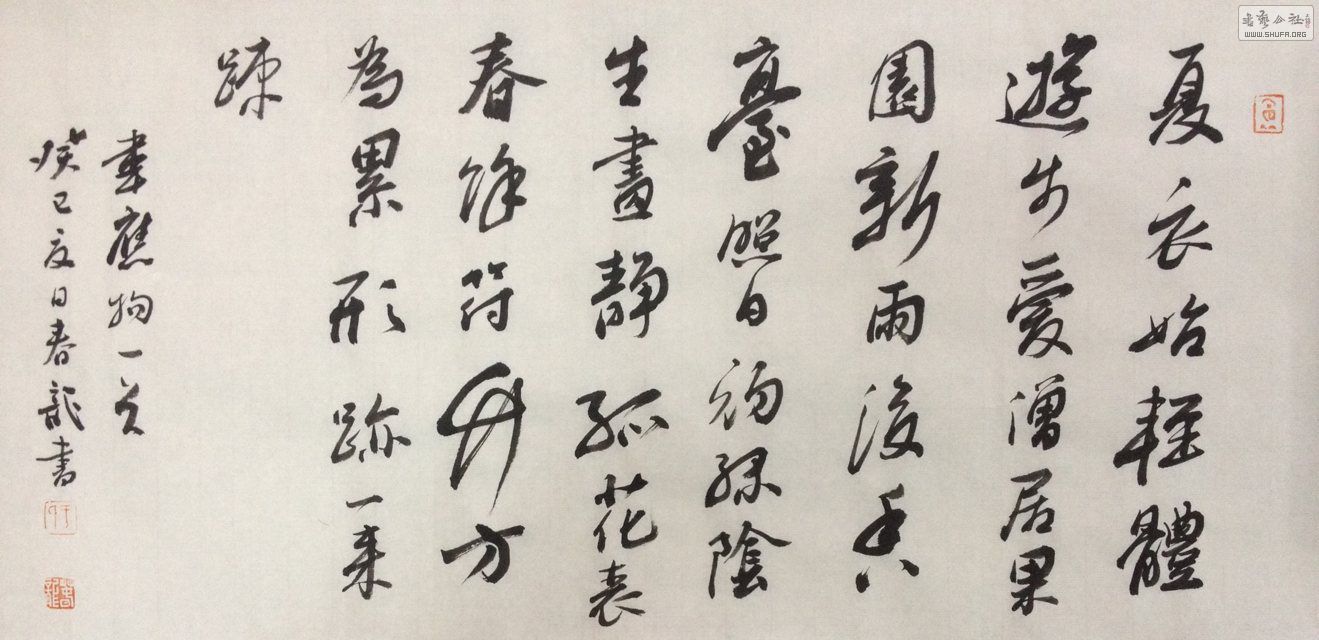 夏衣始輕體
遊步愛僧居果
園新雨後香
臺照日初綠陰
生晝靜孤花表
春餘符竹方
為累形跡一來
踈
韋應物一首
癸巳夏日春龍書
書藝公社
WWW.SHUFA.ORG